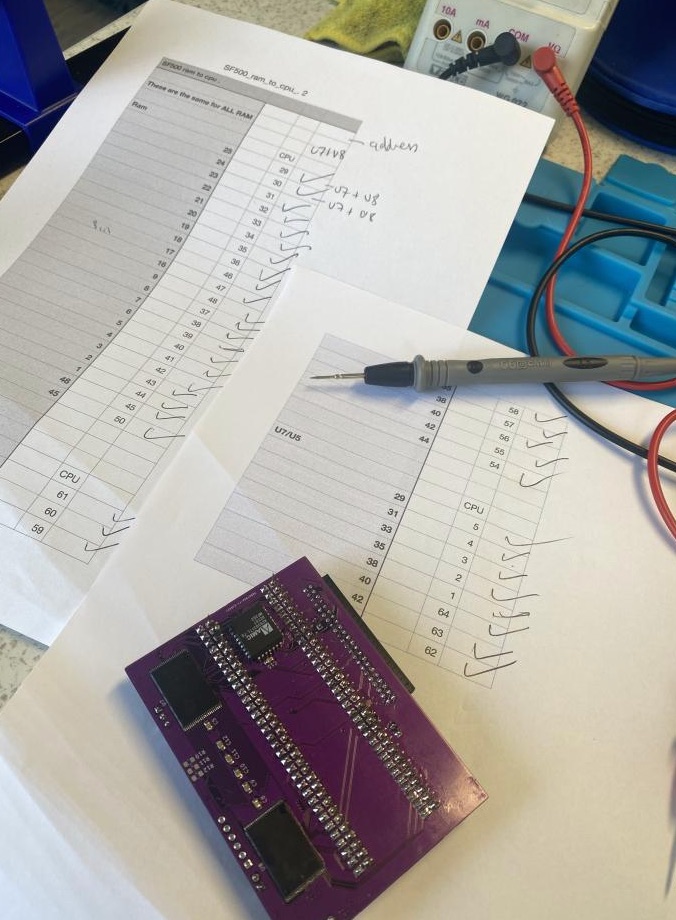 10A mA COM VΩ
SF500_ram_to_cpu_. 2
SF500 ram to cpu_
These are the same for ALL RAM
Ram
address
CPU U7+U8
25 29
24 30
U7 + U8
23 31
U7 + U8
22 32
21 33
20 34
19 35
18 36
17 46
16 47
9 48
8 37
7 38
6 39
5 40
4 41
3 42
2 43
1 44
48 45
45 50
CPU
61
60
59
58
38 57
40 56
42 55
44 54
U7/U5
CPU
29 5
31 4
33 3
35 2
38 1
40 64
42 63
62